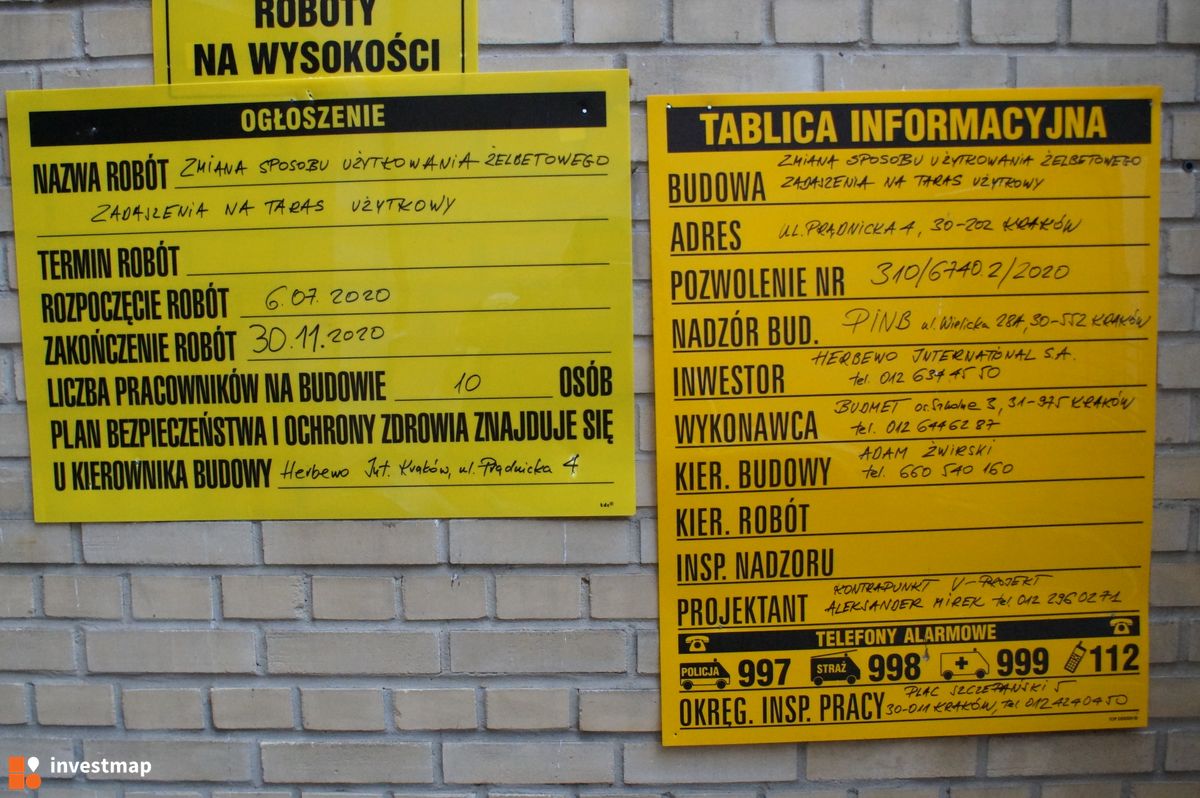 ROBOTY
NA WYSOKOŚCI
OGŁOSZENIE
NAZWA ROBÓT ZMIANA SPOSOBU UŻYTKOWANIA ŻELBETOWEGO
ZADASZENIA NA TARAS UŻYTKOWY
TERMIN ROBÓT
ROZPOCZĘCIE ROBÓT 6.07.2020
ZAKOŃCZENIE ROBÓT 30.11.2020
LICZBA PRACOWNIKÓW NA BUDOWIE 10 OSÓB
PLAN BEZPIECZEŃSTWA I OCHRONY ZDROWIA ZNAJDUJE SIĘ
U KIEROWNIKA BUDOWY Herbewo Int. Kraków, ul. Prądnicka 4
TABLICA INFORMACYJNA
ZMIANA SPOSOBU UŻYTKOWANIA ŻELBETOWEGO
BUDOWA ZADASZENIA NA TARAS UŻYTKOWY
ADRES UL. PRĄDNICKA 4, 30-202 KRAKÓW
POZWOLENIE NR 310/6740.2/2020
NADZÓR BUD. PINB ul. Wielicka 28A, 30-552 KRAKÓW
HERBEWO INTERNATIONAL S.A.
INWESTOR tel. 012 637 45 50
BUDMET os. Szkolne 3, 31-975 KRAKÓW
WYKONAWCA tel. 012 644 62 87
ADAM ŻWIRSKI
KIER. BUDOWY tel. 660 540 160
KIER. ROBÓT
INSP. NADZORU
KONTRAPUNKT V-PROJEKT
PROJEKTANT ALEKSANDER MIREK tel. 012 296 02 71
TELEFONY ALARMOWE
POLICJA 997 STRAŻ 998 999 112
PLAC SZCZEPAŃSKI 5
OKRĘG. INSP. PRACY 30-011 KRAKÓW, tel. 012 424 04 50
investmap